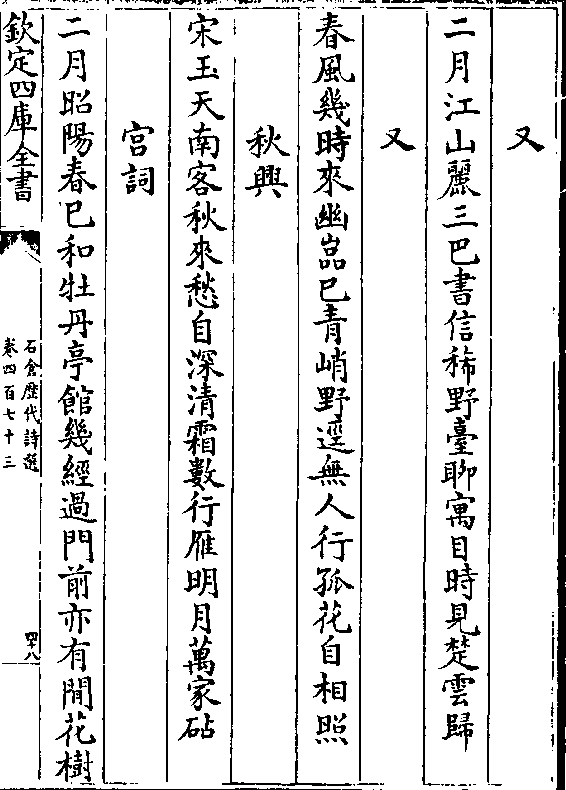 又
二月江山麗三巴書信稀野臺聊寓目時見楚雲歸
又
春風幾時來幽嵓已青峭野逕無人行孤花自相照
秋興
宋玉天南客秋來愁自深清霜數行雁明月萬家砧
宫詞
二月昭陽春已和牡丹亭館幾經過門前亦有閒花樹
欽定四庫全書
石倉歷代詩選
卷四百七十三
四十八